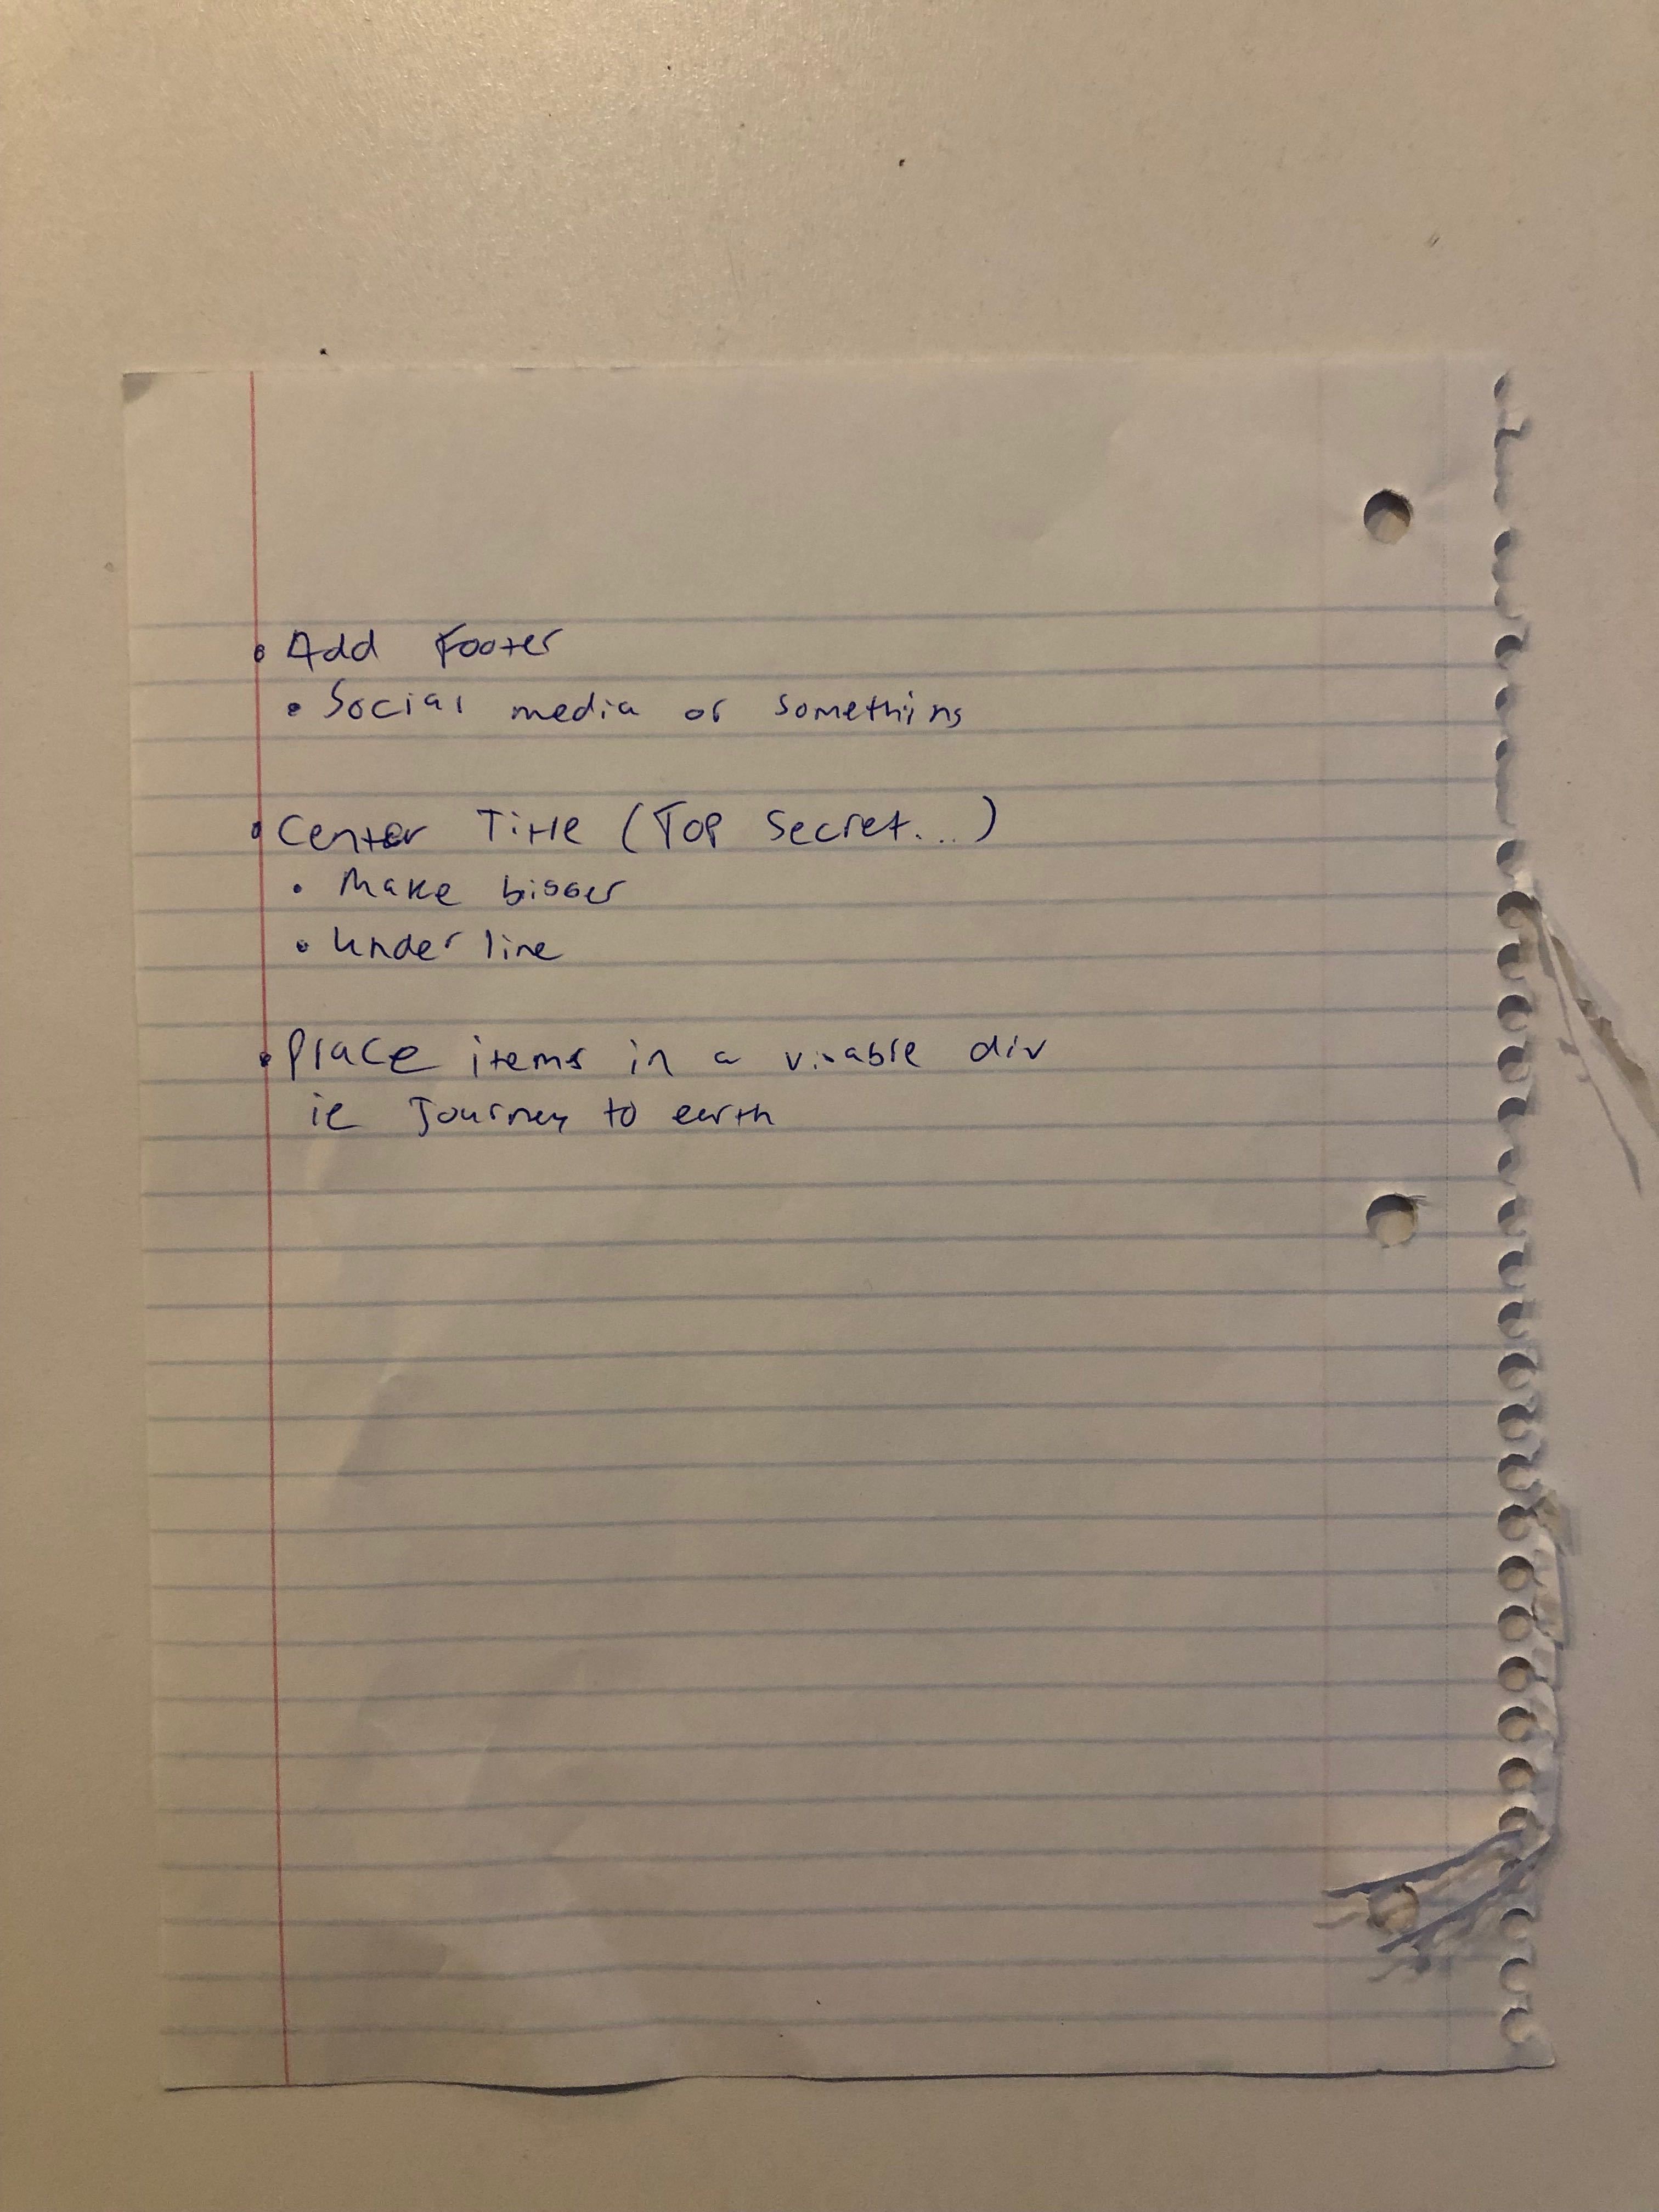 • Add Footer
• Social media or something
• Center Title (Top Secret...)
• Make bigger
• Underline
• Place items in a viable div
ie Journey to earth